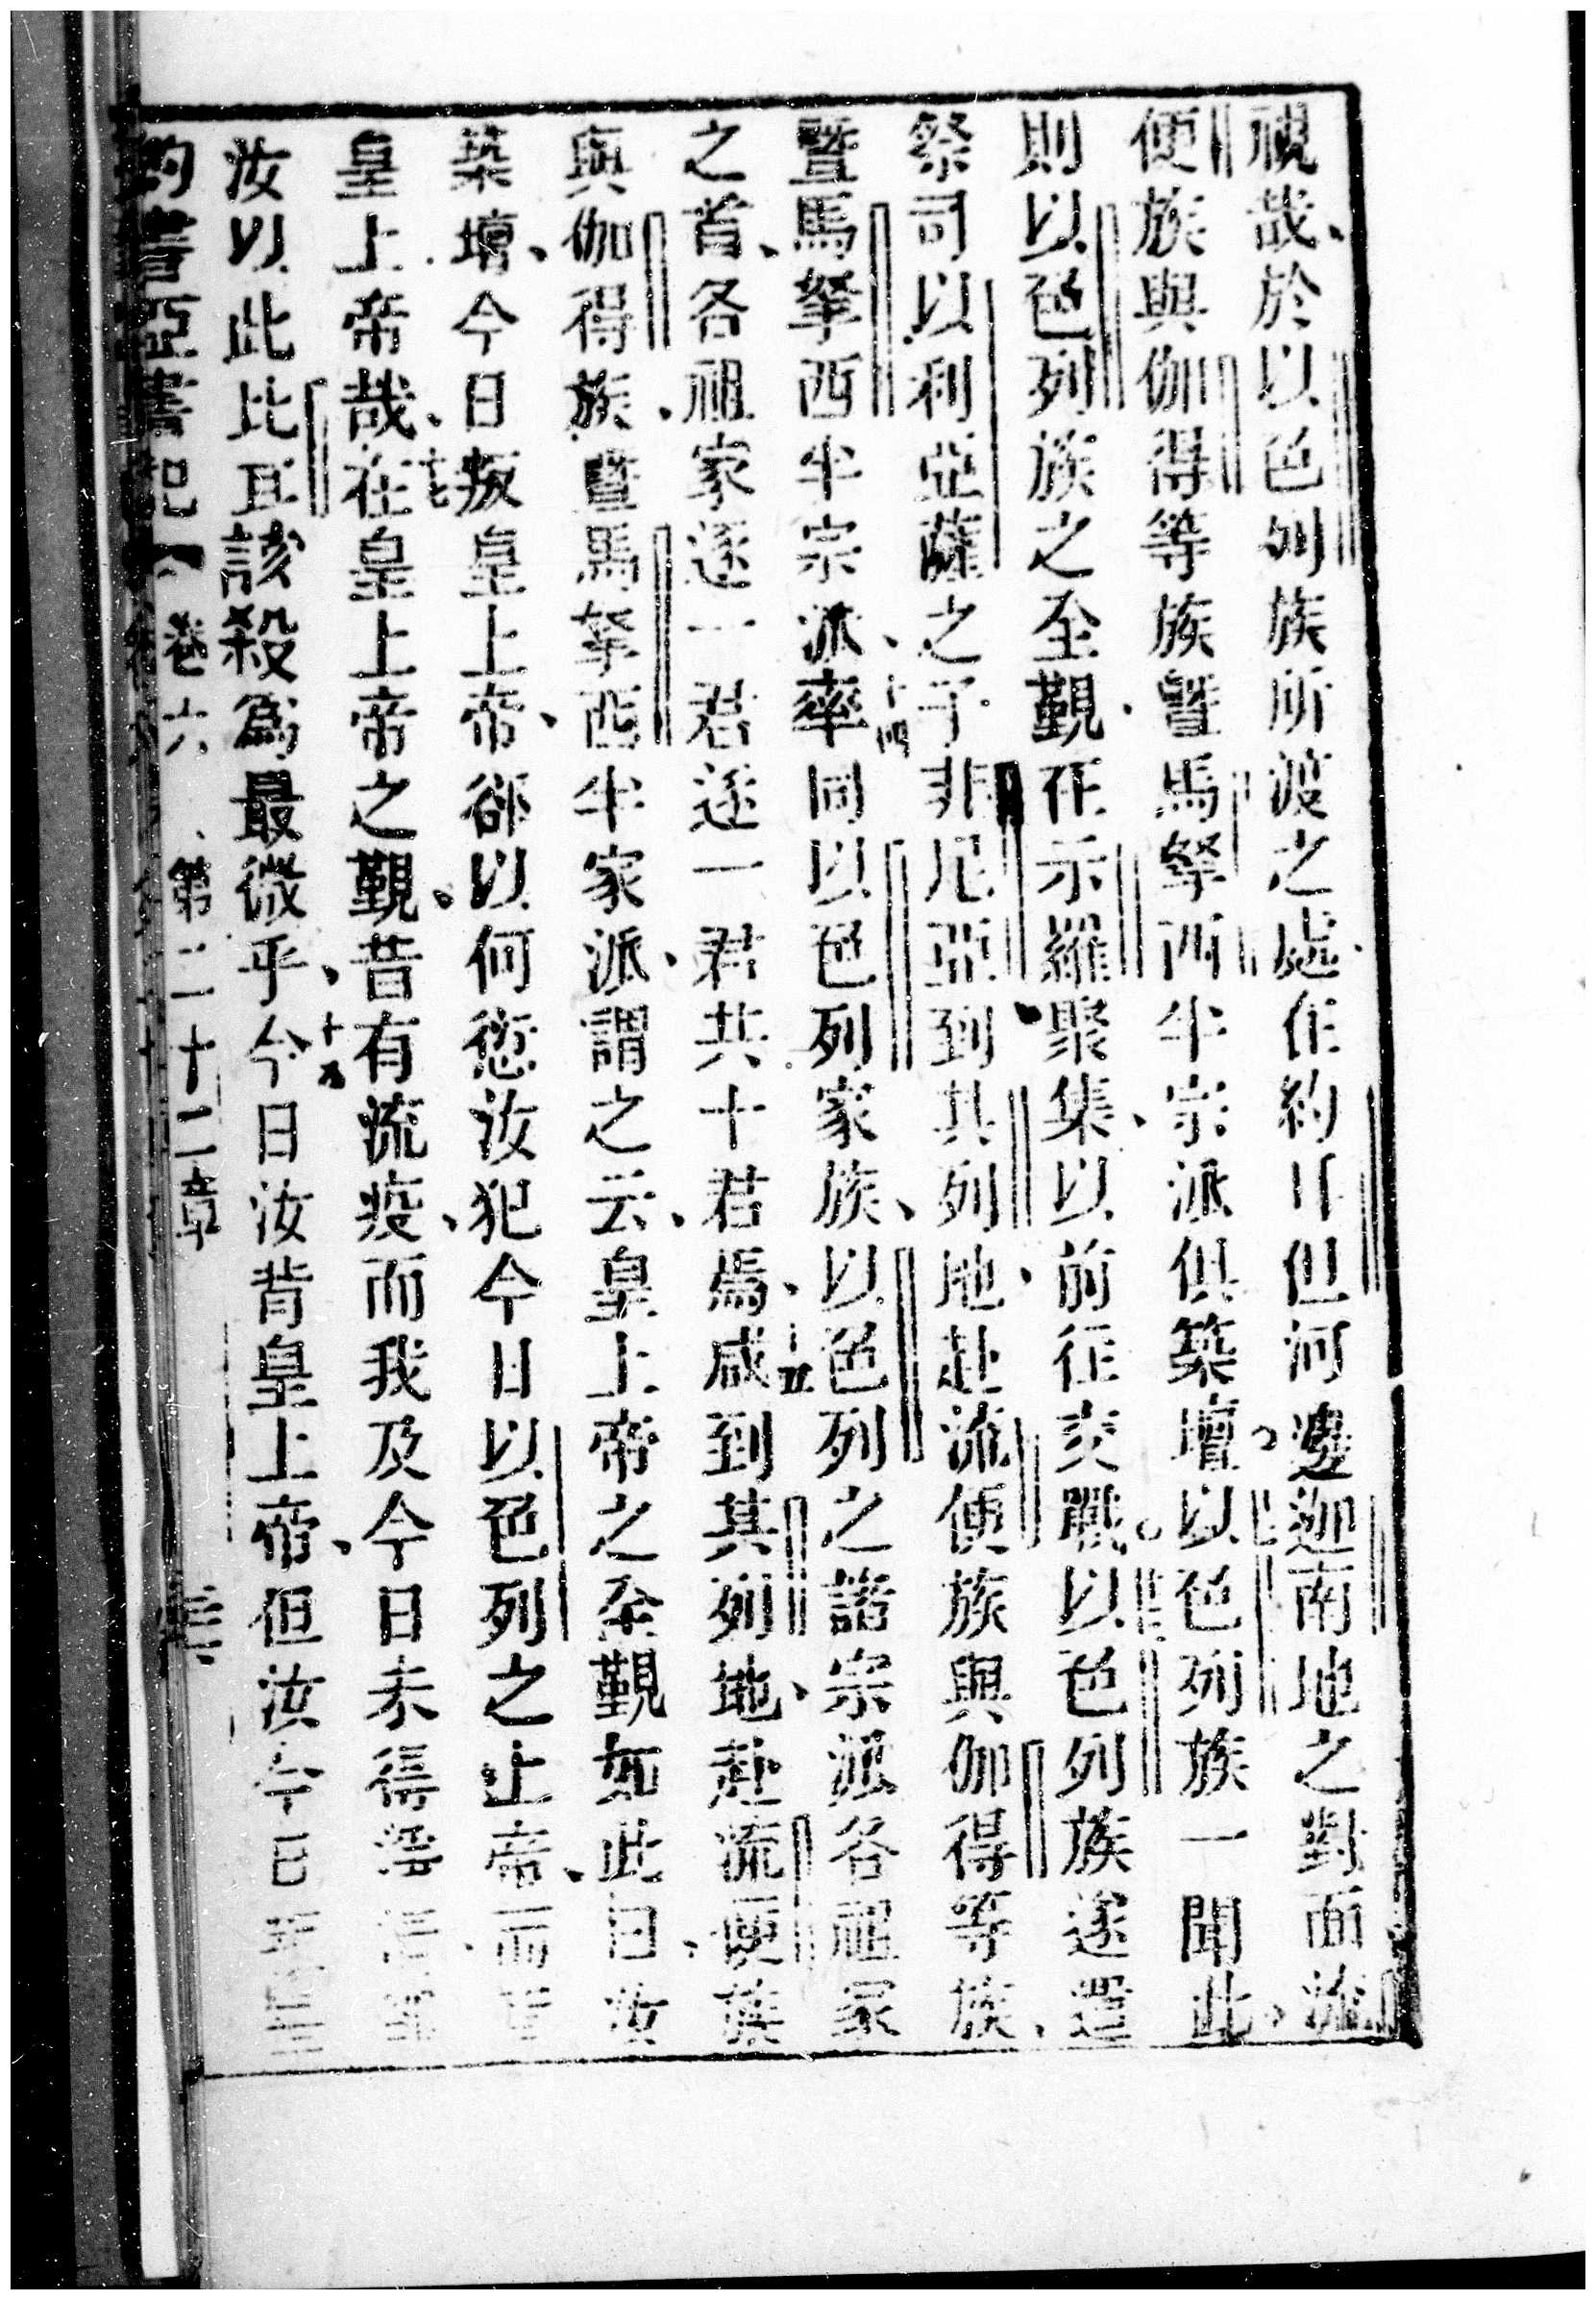 視哉、於以色列族所渡之處、在約耳但河邊迦南地之對面、流
便族與伽得等族、曁馬拏西半宗派俱築壇。以色列族一聞此、
則以色列族之全覲、在示羅聚集、以前往交戰。以色列族遂遣
祭司以利亞薩之子非尼亞到其列地、赴流便族與伽得等族、
曁馬拏西半宗派、十四率同以色列家族、以色列之諸宗派各祖家
之首、各祖家逐一君逐一君共十君焉、十五咸到其列地、赴流便族
與伽得族、曁馬拏西半家派、謂之云、皇上帝之全覲如此曰、汝
築壇、今日叛皇上帝、卻以何愆汝犯今日以色列之上帝、而
皇上帝哉、十七在皇上帝之覲、昔有流疫、而我及今日未得潔
汝以此比耳該殺爲最微乎、十八今日汝背皇上帝、但汝今日
約書亞書記 卷六 第二十二章